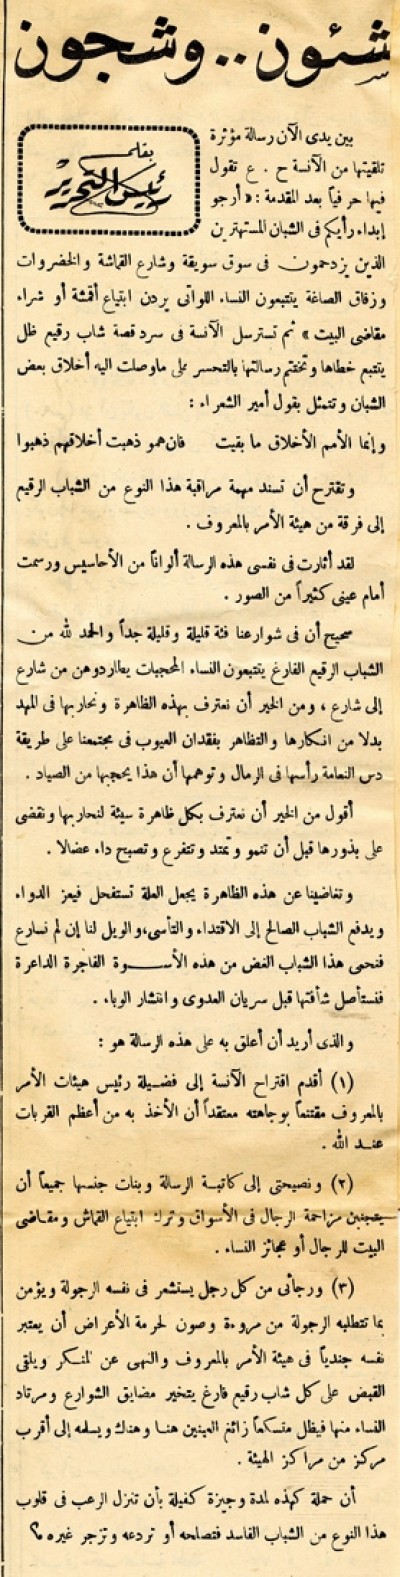 شئون.. وشجون
بقلم
رئيس التحرير
بين يدى الآن رسالة مؤثرة
تلقيتها من الآنسة ح . ع تقول
فيها حرفياً بعد المقدمة : « أرجو
إبداء رأيكم فى الشبان المستهترين
الذين يزدحمون فى سوق سويقة وشارع القماشة والخضروات
وزقاق الصاغة يتتبعون النساء اللواتى يردن ابتياع أقمشة أو شراء
مقاضى البيت » ثم تسترسل الآنسة فى سرد قصة شاب رقيع ظل
يتتبع خطاها وتختتم رسالتها بالتحسر على ماوصلت اليه أخلاق بعض
الشبان وتتمثل بقول أمير الشعراء :
وإنما الأمم الأخلاق ما بقيت فان همو ذهبت أخلاقهم ذهبوا
وتقترح أن تسند مهمة مراقبة هذا النوع من الشباب الرقيع
إلى فرقة من هيئة الأمر بالمعروف .
لقد أثارت فى نفسى هذه الرسالة ألواناً من الأحاسيس ورسمت
أمام عينى كثيراً من الصور .
صحيح أن فى شوارعنا فئة قليلة وقليلة جداً والحمد لله من
الشباب الرقيع الفارغ يتتبعون النساء المحجبات يطاردوهن من شارع
إلى شارع ، ومن الخير أن نعترف بهذه الظاهرة ونحاربها فى المهد
بدلا من انكارها والتظاهر بفقدان العيوب فى مجتمعنا على طريقة
دس النعامة رأسها فى الرمال وتوهمها أن هذا يحجبها من الصياد .
أقول من الخير أن نعترف بكل ظاهرة سيئة لنحاربها ونقضى
على بذورها قبل أن تنمو وتمتد وتتفرع وتصبح داء عضالا .
وتغاضينا عن هذه الظاهرة يجعل العلة تستفحل فيعز الدواء
ويدفع الشباب الصالح إلى الاقتداء والتأسى،والويل لنا إن لم نسارع
فنحمى هذا الشباب الغض من هذه الأسوة الفاجرة الداعرة
فنستأصل شأفتها قبل سريان العدوى وانتشار الوباء .
والذى أريد أن أعلق به على هذه الرسالة هو :
(١) أقدم اقتراح الآنسة إلى فضيلة رئيس هيئات الأمر
بالمعروف مقتنعاً بوجاهته معتقداً أن الأخذ به من أعظم القربات
عند الله .
(٢) ونصيحتى إلى كاتبة الرسالة وبنات جنسها جميعاً أن
يتجنبن مزاحمة الرجال فى الأسواق وترك ابتياع القماش ومقاضى
البيت للرجال أو عجائز النساء .
(٣) ورجائى من كل رجل يستشعر فى نفسه الرجولة ويؤمن
بما تتطلبه الرجولة من مروءة وصون لحرمة الأعراض أن يعتبر
نفسه جندياً فى هيئة الأمر بالمعروف والنهى عن المنكر ويلقى
القبض على كل شاب رقيع فارغ يتخير مضايق الشوارع ومرتاد
النساء منها فيظل متسكعاً زائغ العينين هنا وهناك ويسلمه إلى أقرب
مركز من مراكز الهيئة .
أن حملة كهذه لمدة وجيزة كفيلة بأن تنزل الرعب فى قلوب
هذا النوع من الشباب الفاسد فتصلحه أو تردعه وتزجر غيره ؟